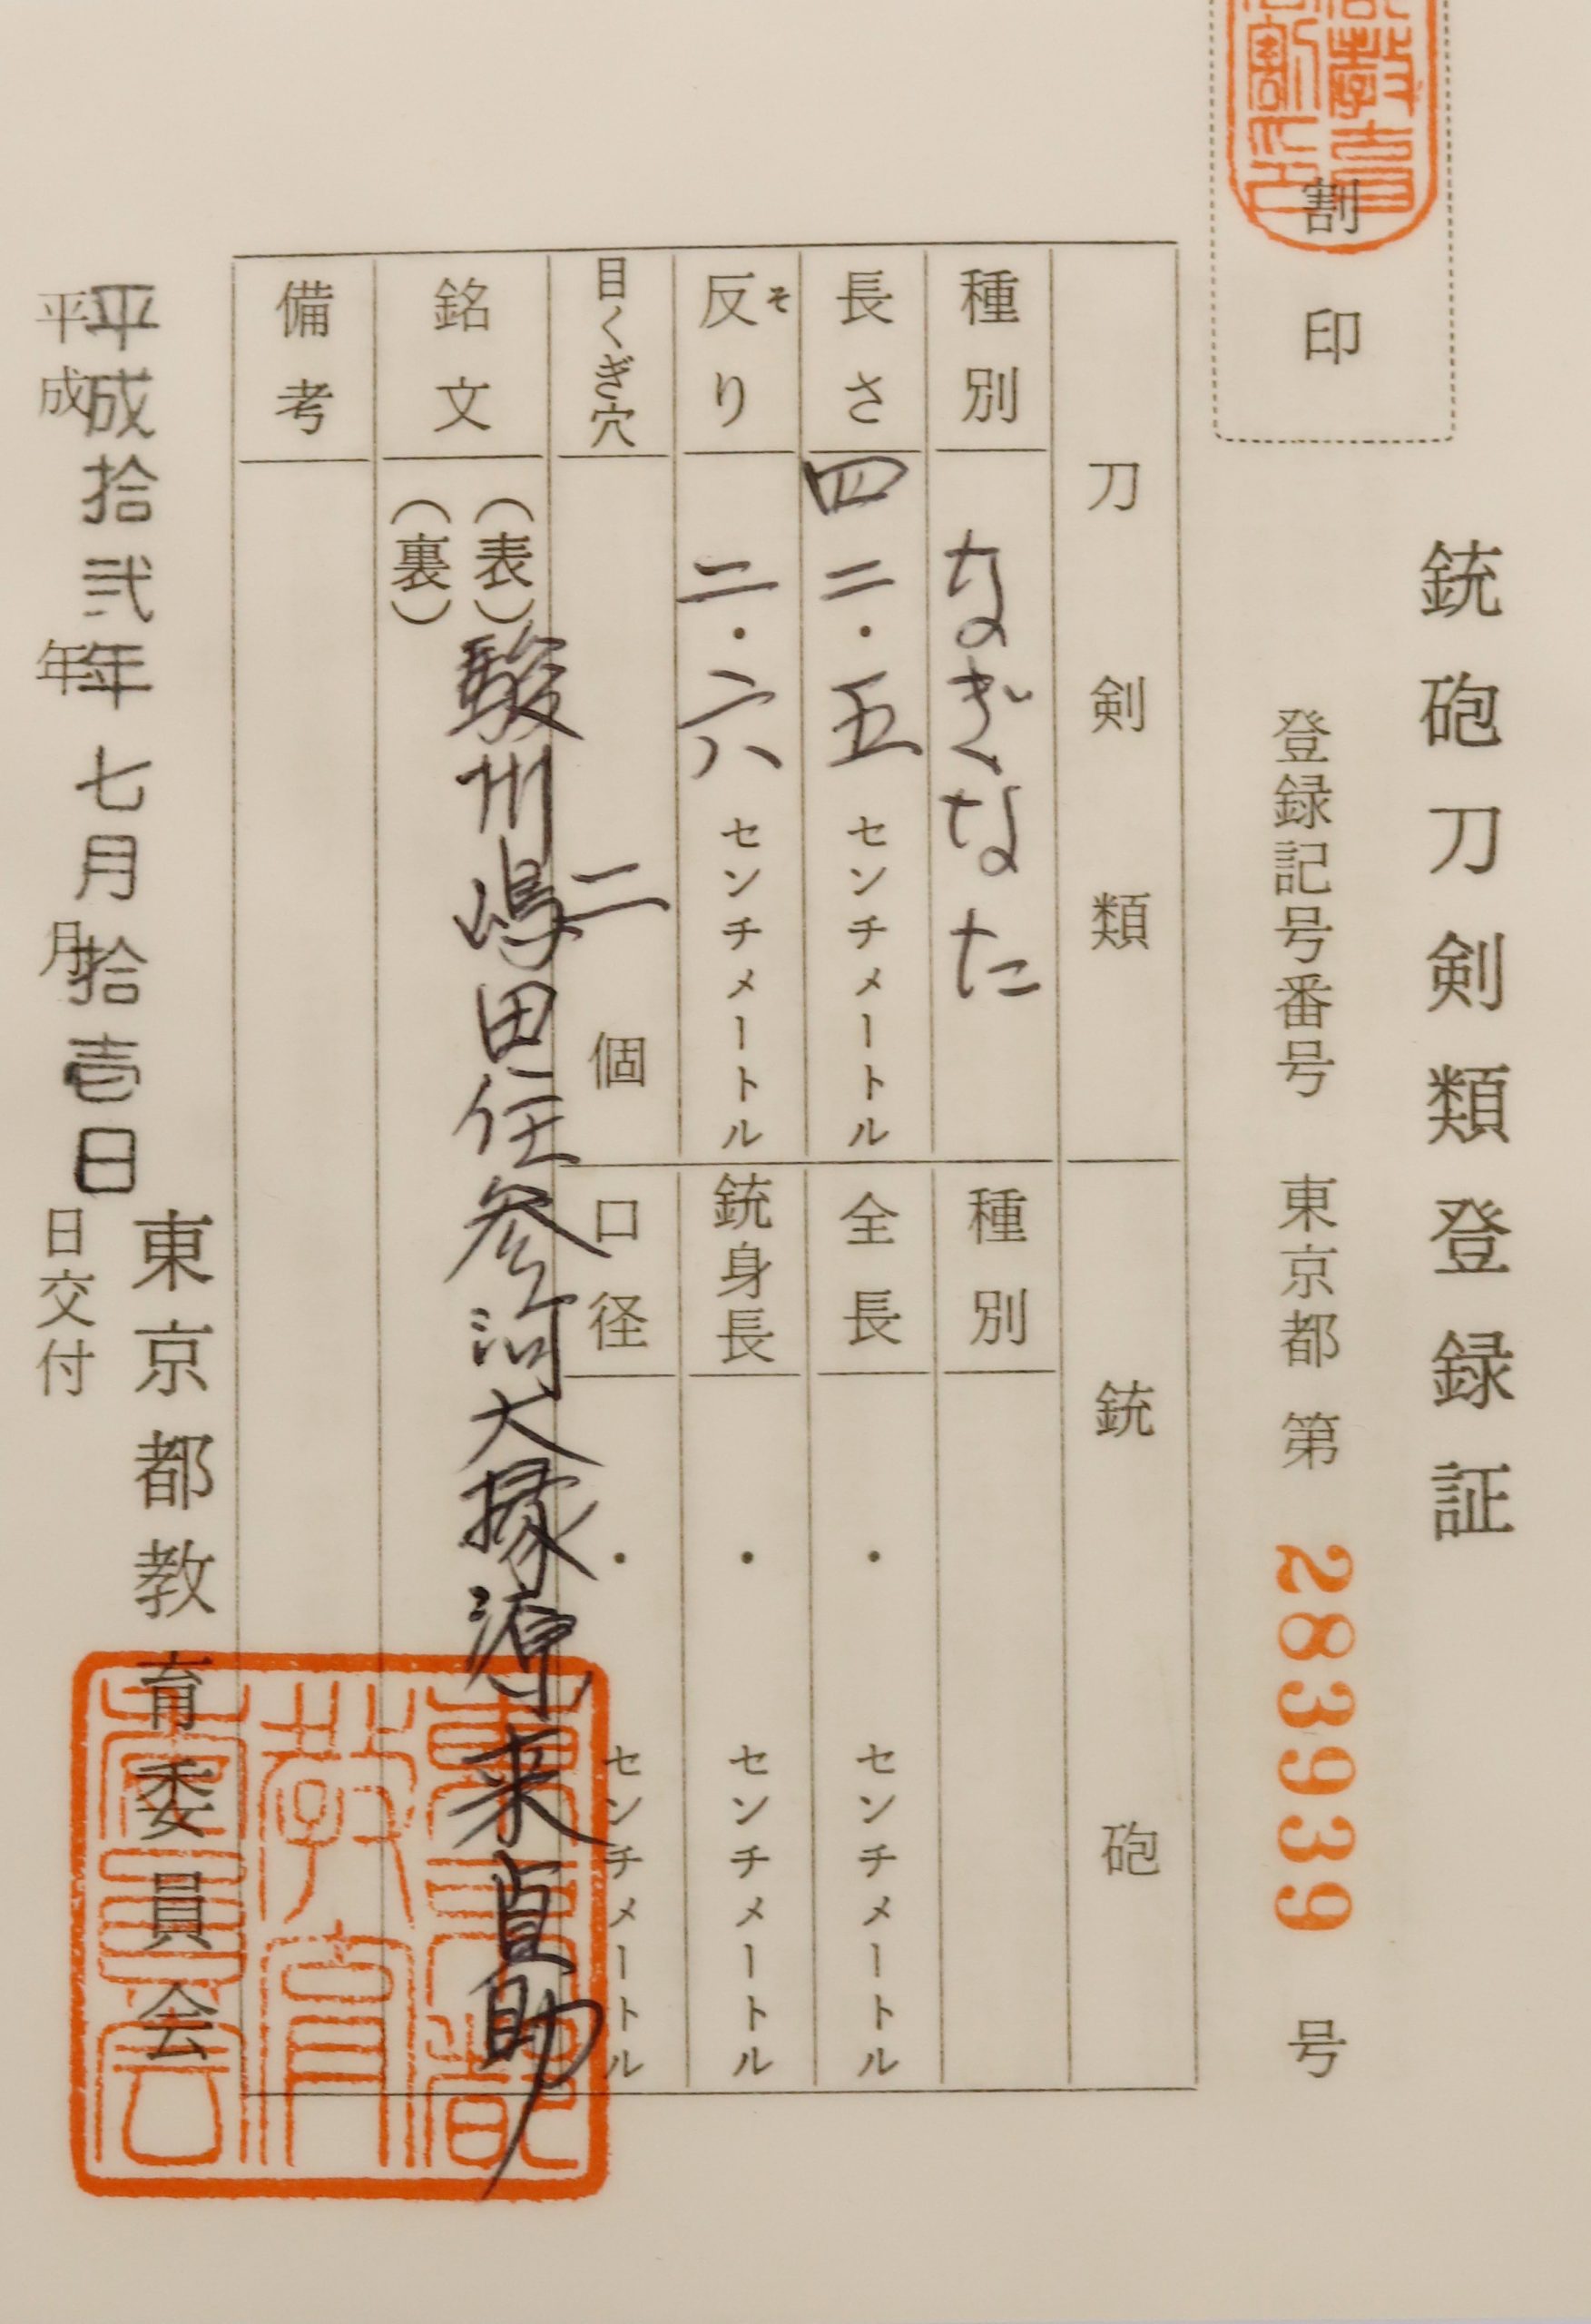 銃砲刀剣類登録証
割印
登録記号番号 東京都 第 283939 号
刀剣類
種別 なぎなた
長さ 四二・五 センチメートル
反り 二・六 センチメートル
そ
目くぎ穴 二 個
銃砲
種別
全長 ・ センチメートル
銃身長 ・ センチメートル
口径 ・ センチメートル
銘文 (表) 駿州嶋田住参河大掾源来貞助
(裏)
備考
東京都教育委員会
平成拾弐年七月拾壱日
平成 年 月 日交付
東京都教育委員会